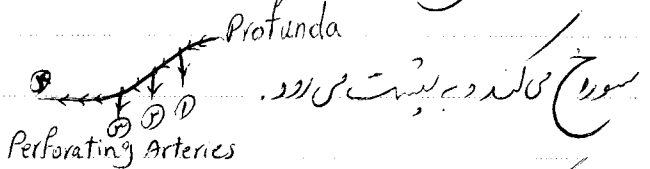 Profunda
سوراخ می کند و به پشت می رود.
① ② ③ ④
Perforating Arteries